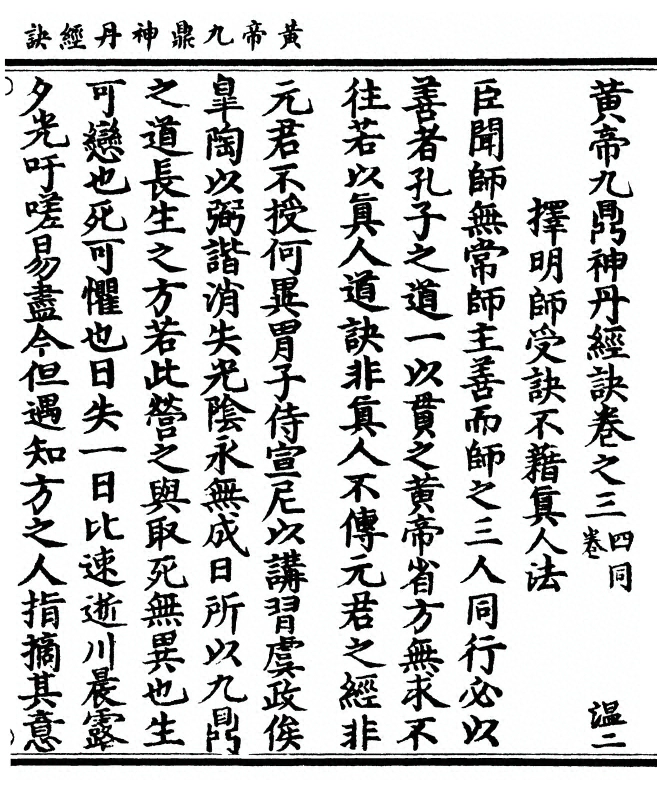 黃帝九鼎神丹經訣
黃帝九鼎神丹經訣卷之三 四同卷 温二
擇明師受訣不藉眞人法
臣聞師無常師主善而師之三人同行必以
善者孔子之道一以貫之黃帝省方無求不
往若以眞人道訣非眞人不傳元君之經非
元君不授何異胃子侍宣尼以講習虞政俟
臯陶以弼諧消失光陰永無成日所以九鼎
之道長生之方若此營之與取死無異也生
可戀也死可懼也日失一日比速逝川晨露
夕光吁嗟易盡今但遇知方之人指摘其意